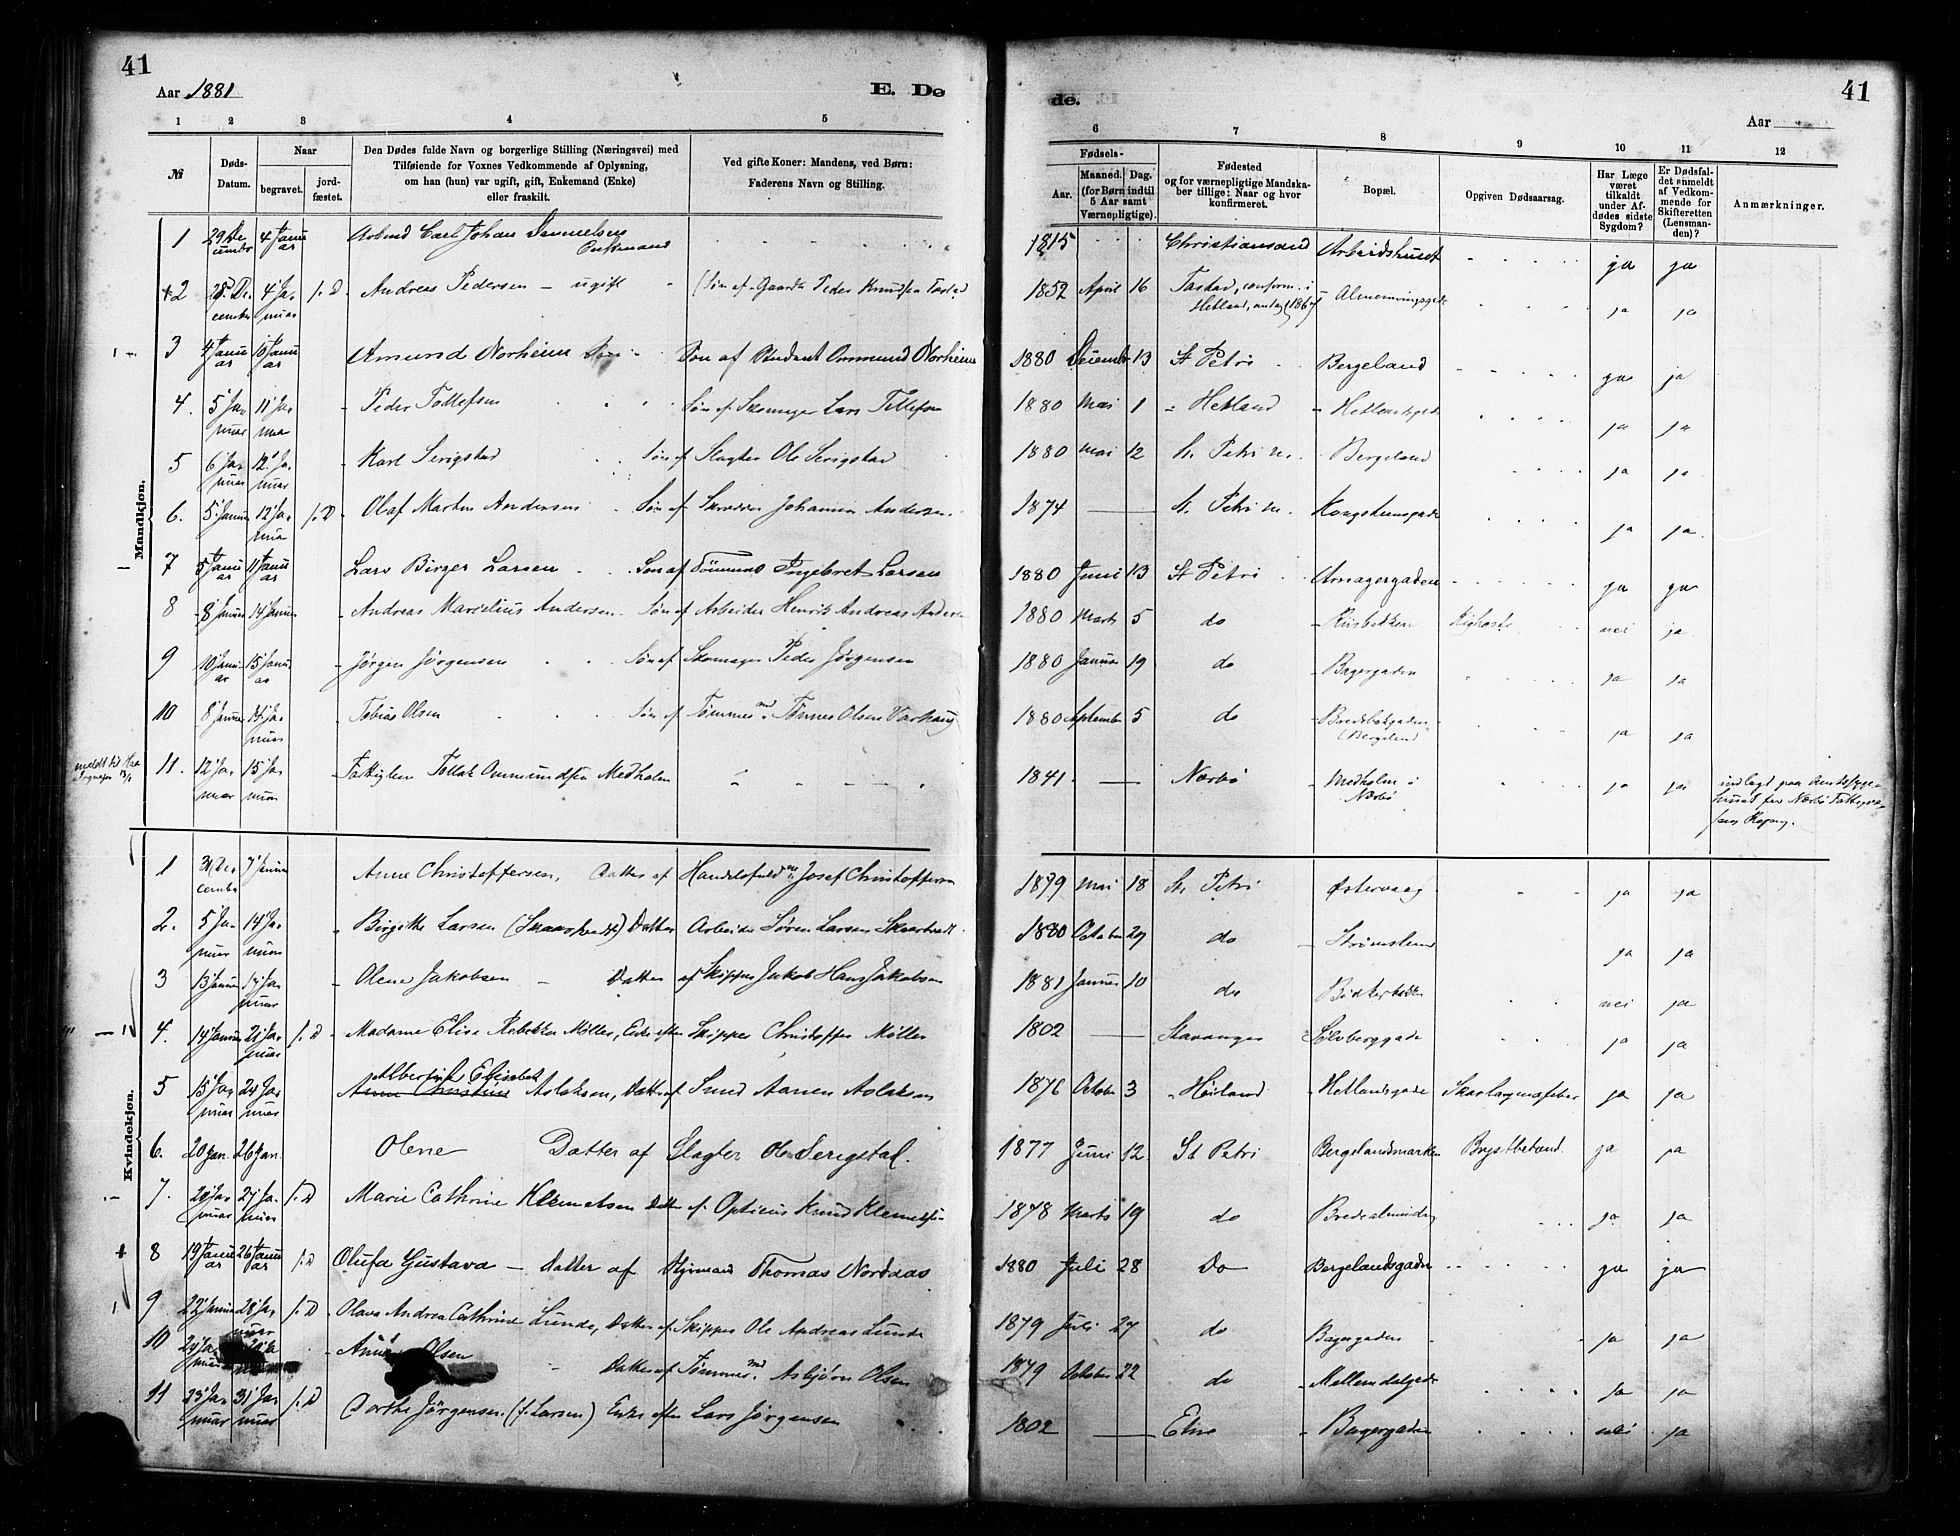 41
41
Aar 1881
E. Dø
de.
Aar
1 2 3 4 5
6 7 8 9 10 11 12
№
Døds-Datum.
Naar
begravet.
jord-fæstet.
Den Dødes fulde Navn og borgerlige Stilling (Næringsvei) med
Tilføiende for Voxnes Vedkommende af Oplysning,
om han (hun) var ugift, gift, Enkemand (Enke)
eller fraskilt.
Ved gifte Koner: Mandens, ved Børn:
Faderens Navn og Stilling.
Fødsels-
Aar.
Maaned. Dag.
(for Børn indtil
5 Aar samt
Værnepligtige).
Fødested
og for værnepligtige Mandska-
ber tillige: Naar og hvor
konfirmeret.
Bopæl.
Opgiven Dødsaarsag.
Har Læge
været
tilkaldt
under Af-
dødes sidste
Sygdom?
Er Dødsfal-
det anmeldt
af Vedkom-
mende for
Skifteretten
(Lensman-
den)?
Anmærkninger.
Mandkjøn.
1 29 December 4 Januar Arbmd Carl Johan Enkemand 1815 Christiansand Arbeidshuset ja ja
2 December 4 Januar j.D Andreas Pedersen – ugift (Søn af Gaardm Peder Knudsen Tastad 1852 April 16 Tastad, conform. i Hetland, 1867 ja ja
3 4 Januar 10 Januar Amund Norheim Søn af Ommund Norheim 1880 December 13 St Petri Bergeland ja ja
4. 5 Januar 11 Januar Peder Tollefsen Søn af Skomager Lars Tollefsen 1880 Mai 1 Hetland Hetlandsgade ja ja
5 6 Januar 12 Januar Karl Serigstad Søn af Slagter Ole Serigstad 1880 Mai 12 St. Petri Bergeland ja ja
6. 5 Januar 12 Januar j.D Olaf Martin Andersen Søn af Skrædder Johannes Andersen 1874 — St. Petri Kongsteensgade ja ja
7 5 Januar 11 Januar Lars Birger Larsen Søn af Tømmermd Ingebret Larsen 1880 Juni 13 St Petri Amagergaden ja ja
8 8 Januar 14 Januar Andreas Marselius Andersen Søn af Arbeider Henrik Andreas Andersen 1880 Marts 5 do Kighoste nei ja
9 10 Januar 15 Januar Jørgen Jørgensen Søn af Skomager Peder Jørgensen 1880 Januar 19 do Bagergaden ja ja
10 8 Januar 14 Januar Tobias Olsen Søn af Tømmermd. Tønnes Olsen Varhaug 1880 September 5 do Bredebakgaden (Bergeland ja ja
11. 12 Januar 15 Januar Fattiglem Tollak Ommundsen Medholen 1841 — Nærbø Medholen i Nærbø ja ja indlagt paa Amtssyge-
huset for Nærbø Fattigvæ-
sens Regning.
Kvindekjøn.
1 31 December 7 Januar Anne Christoffersen, Datter af Josef Christoffersen 1879 Mai 18 St. Petri Østervaag ja ja
2. 5 Januar 14 Januar Birgitte Larsen Datter Arbeider Søren Larsen 1880 October 29 do Strømsteen ja ja
3 13 Januar 17 Januar Olene Jakobsen Datter af Skipper Jakob Hans Jakobsen 1881 Januar 10 do Bødkerbakken nei ja
4. 14 Januar 21 Januar j.D Madame Elise Rebekka Møller, Enke efter Skipper Christoffer Møller 1802 — Stavanger Sølvberggade ja ja
Albertine Elisabet
5 15 Januar 24 Januar Anne Christine Aslaksen, Datter af Smed Aanen Aslaksen 1876 October 3 Høiland Hetlandsgade Skarlagensfeber ja ja
6. 20 Jan. 26 Jan. Olene Datter af Slagter Ole Serigstad. 1877 Juni 12 St Petri Bergelandsmarken Brystbetænd. ja ja
7. 20 Januar 27 Januar j.D Marie Cathrine Klemetsen Datter af Opticus Knud Klemetsen 1878 Marts 19 do Bredealmindg ja ja
8 19 Januar 26 Januar j.D Olufa Gustava – Datter af Thomas Nordaas 1880 Juli 28 Do Bergelandsgaden ja ja
9 22 Januar 28 Januar j.D Olava Andrea Cathrine Lunde, Datter af Skipper Ole Andreas Lunde 1879 Juli 27 do Bagergaden ja ja
10 24 Januar Olsen Datter af Tømmermd. Asbjørn Olsen 1879 October 22 do Mellemdalgade ja ja
11 23 Januar 31 Januar j.D Dorthe Jørgensen (f. Larsen) Enke efter Lars Jørgensen 1802 — Bagergaden nei ja